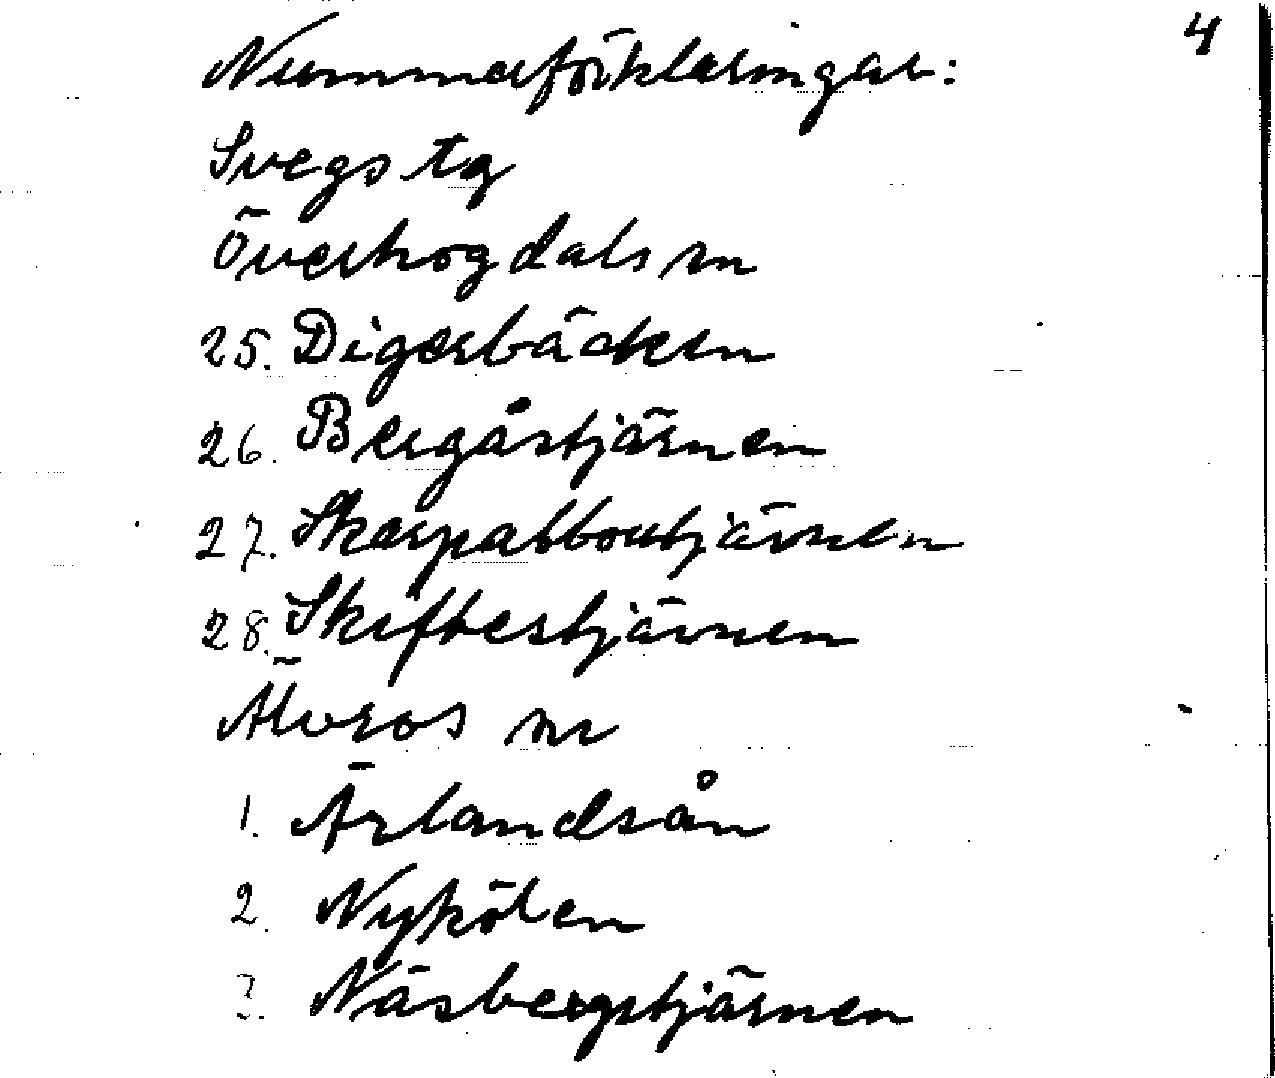 4
Nummerförklaringar:
Svegs tg
Överhogdals sn
25. Digerbäcken
26. Bergåstjärnen
27. Skarpabboutjärnen
28. Skiftestjärnen
Älvros sn
1. Ärlandsån
2. Nykölen
3. Näsbergstjärnen